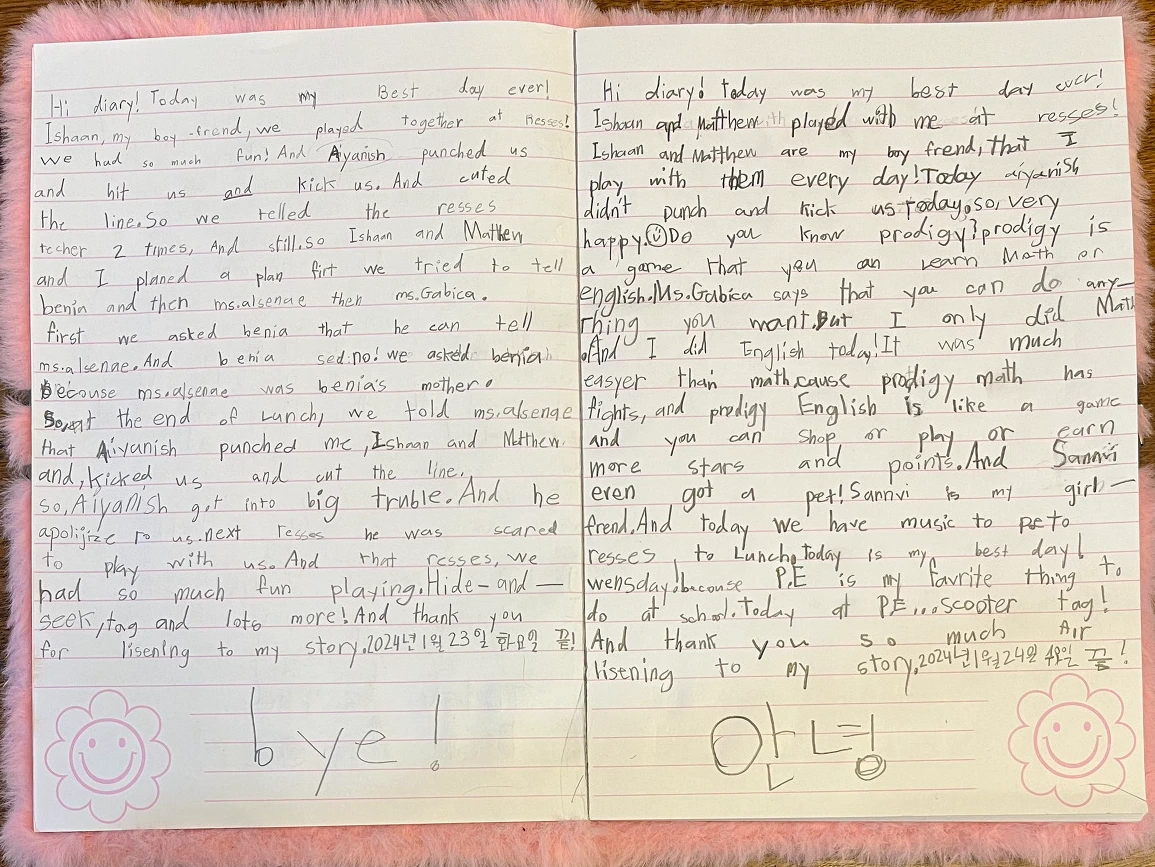 Hi diary! Today was my Best day ever!
Ishaan, my boy-frend, we played together at Resses!
we had so much fun! And Aiyanish punched us
and hit us and kick us. And cuted
the line. So we telled the resses
techer 2 times, And still. so Ishaan and Mathew
and I planed a plan firt we tried to tell
benia and then ms.alsenae then ms.Gabica.
first we asked benia that he can tell
ms.alsenae. And benia sed no! we asked benia
Because ms.alsenae was benia's mother.
So, at the end of Lunch, we told ms.alsenge
that Aiyanish punched me, Ishaan and Matthew
and, kicked us and cut the line.
so, Aiyanish got into big truble. And he
apolijize to us. next resses he was scared
to play with us. And that resses, we
had so much fun playing. Hide-and-
seek, tag and lots more! And thank you
for lisening to my story. 2024년 1월 23일 화요일 끝!
bye!
Hi diary! today was my best day ever!
Ishaan and Matthew played with me at resses!
Ishaan and Matthew are my boy frend, that I
play with them every day! Today aiyanish
didn't punch and kick us today. so, very
happy. Do you know prodigy? prodigy is
a game that you can Learn Math or
english. Ms. Gabica says that you can do any-
thing you want. But I only did Math
. And I did English today! It was much
easyer than math, cause prodigy math has
fights, and prodigy English is like a game
and you can shop or play or earn
more stars and points. And Sannvi
even got a pet! Sannvi is my girl-
frend. And today we have music to PE to
resses, to Lunch, today is my best day!
wensday! becouse P.E is my favrite thing to
do at school. Today at PE... scooter tag!
And thank you so much
lisening to my story. 2024년 1월 24일 수요일 끝!
안녕